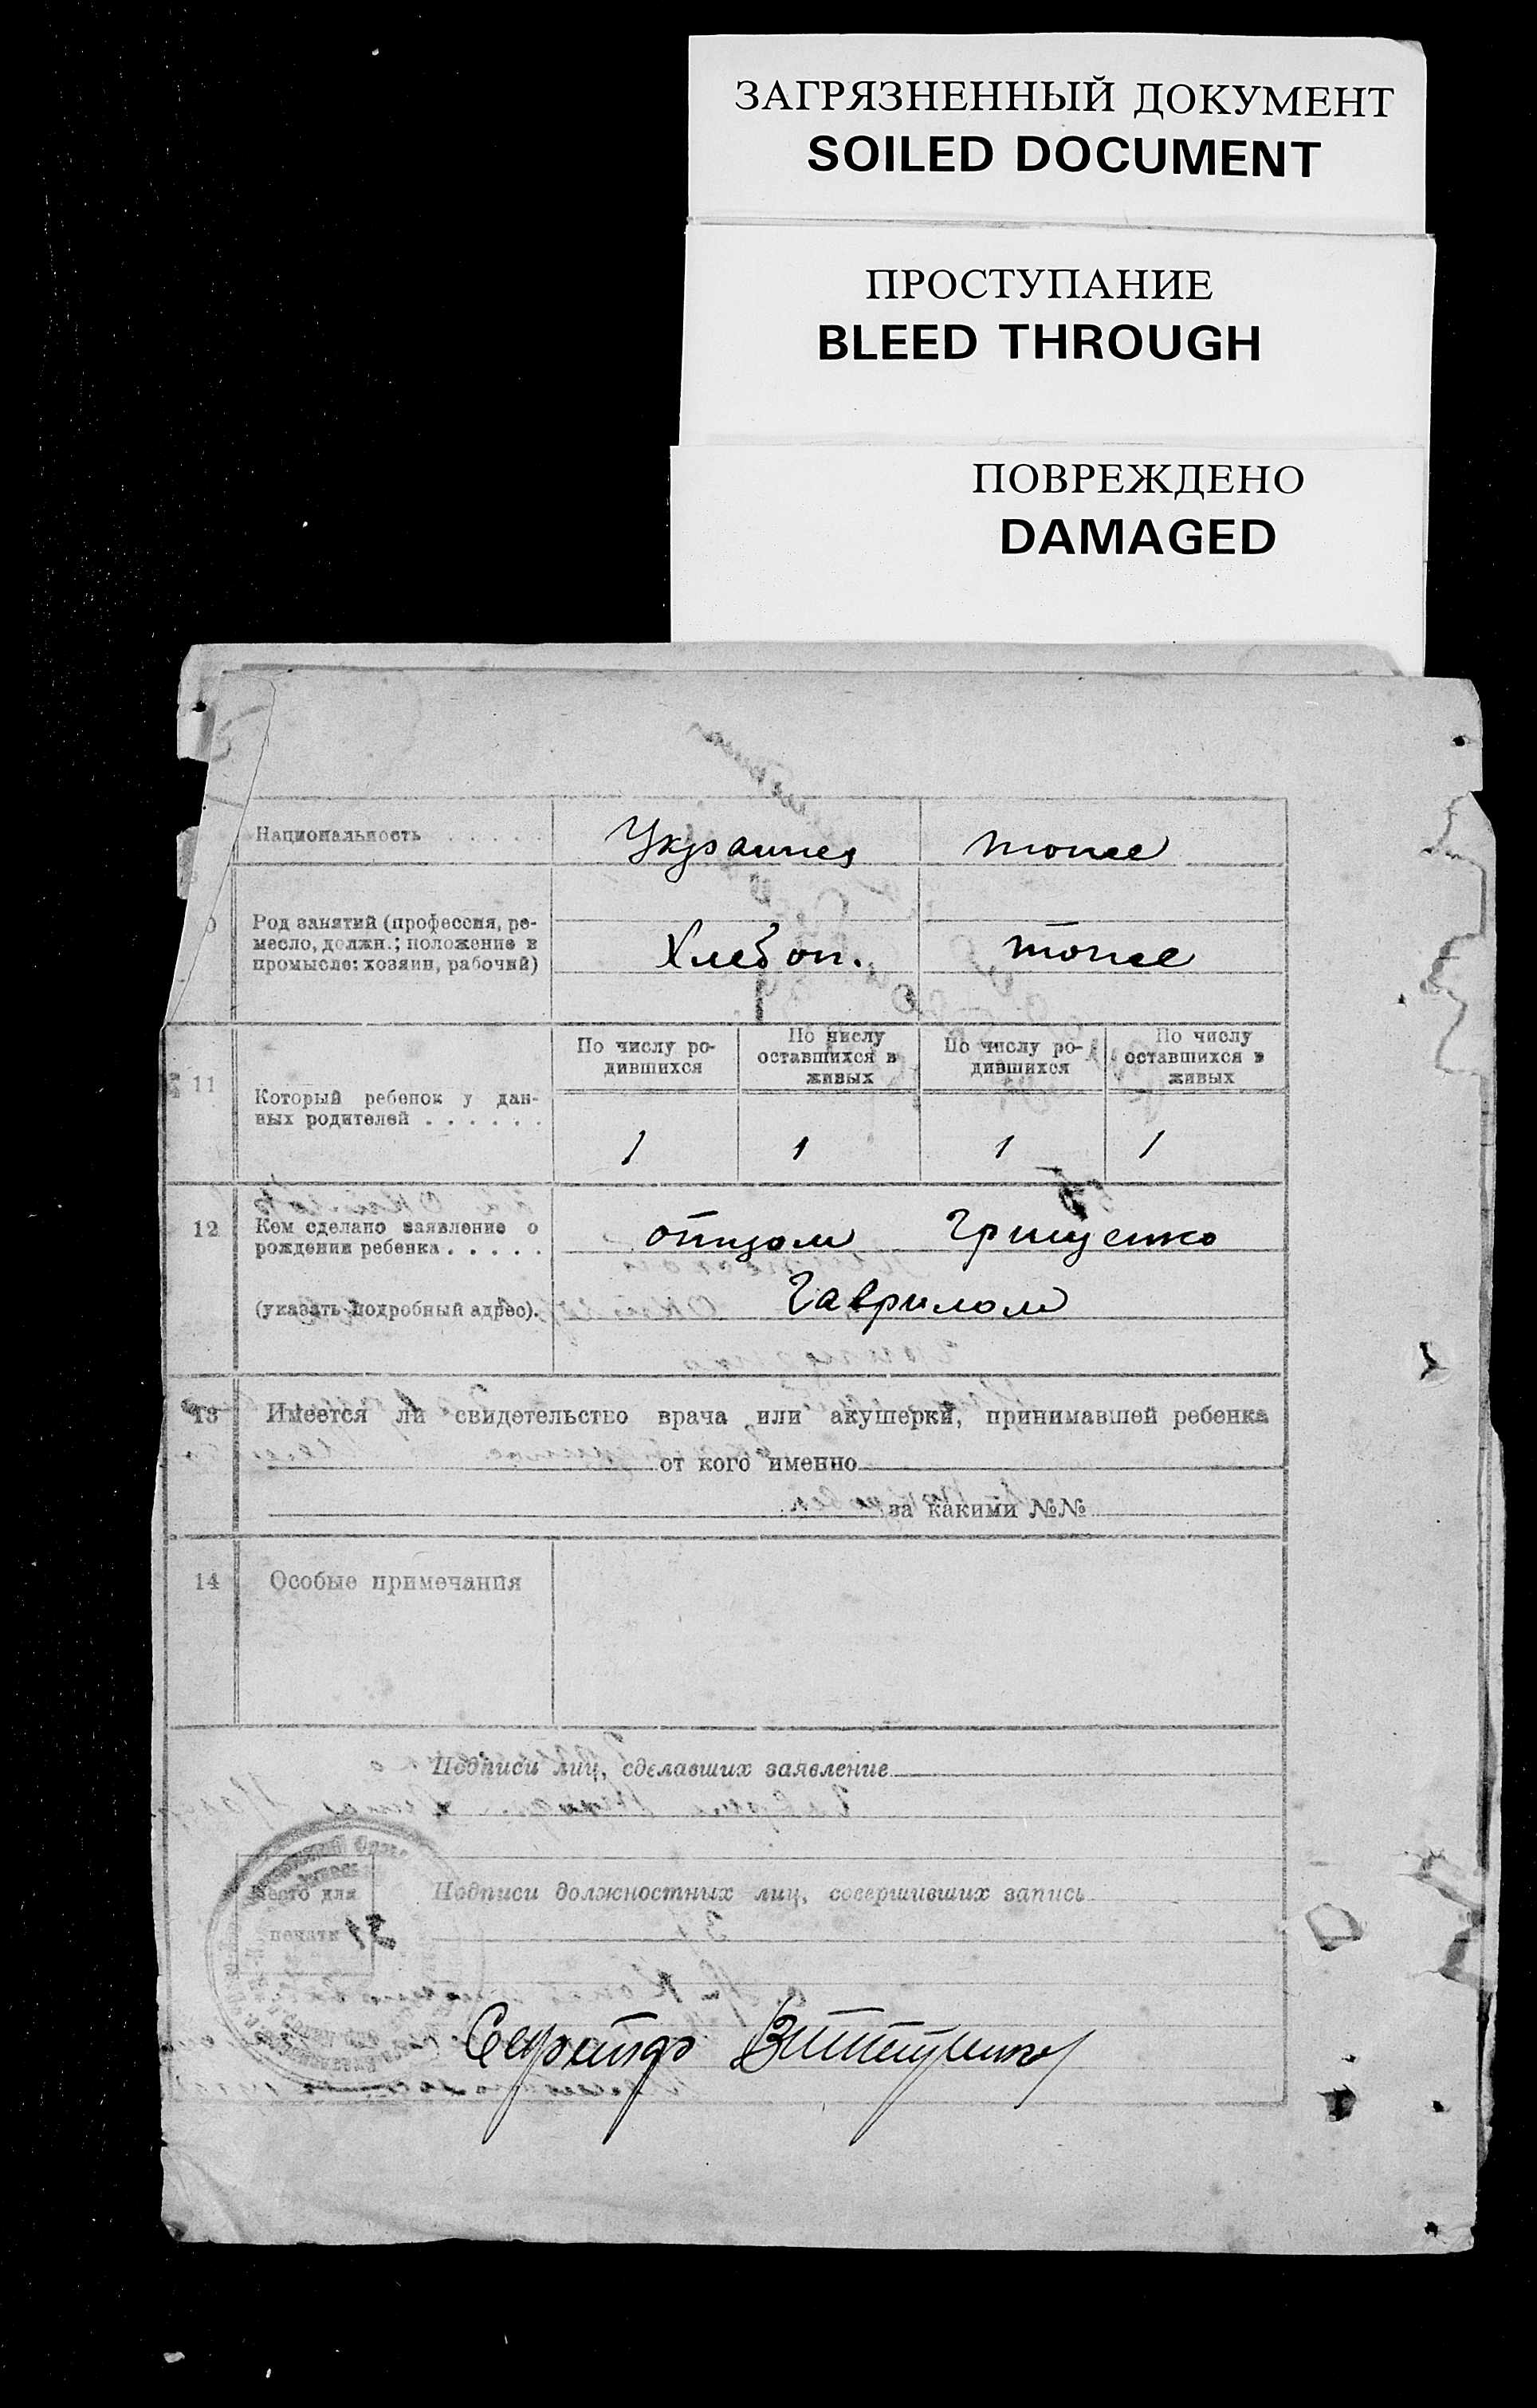 ЗАГРЯЗНЕННЫЙ ДОКУМЕНТ
SOILED DOCUMENT
ПРОСТУПАНИЕ
BLEED THROUGH
ПОВРЕЖДЕНО
DAMAGED
Национальность . . . . . Украинец тоже
Род занятий (профессия, ре-
месло, должн.; положение в
промысле: хозяин, рабочий)
Хлебоп. тоже
11
Который ребенок у дан-
ных родителей . . . . . .
По числу ро-
дившихся
По числу
оставшихся в
живых
По числу ро-
дившихся
По числу
оставшихся в
живых
1 1 1 1
12
Кем сделано заявление о
рождении ребенка . . . . .
(указать подробный адрес).
отцом Грищенко
Гаврилом
13 Имеется ли свидетельство врача или акушерки, принимавшей ребенка
от кого именно
за какими №№
14 Особые примечания
Подписи лиц, сделавших заявление
Место для
печати
Подписи должностных лиц, совершивших запись